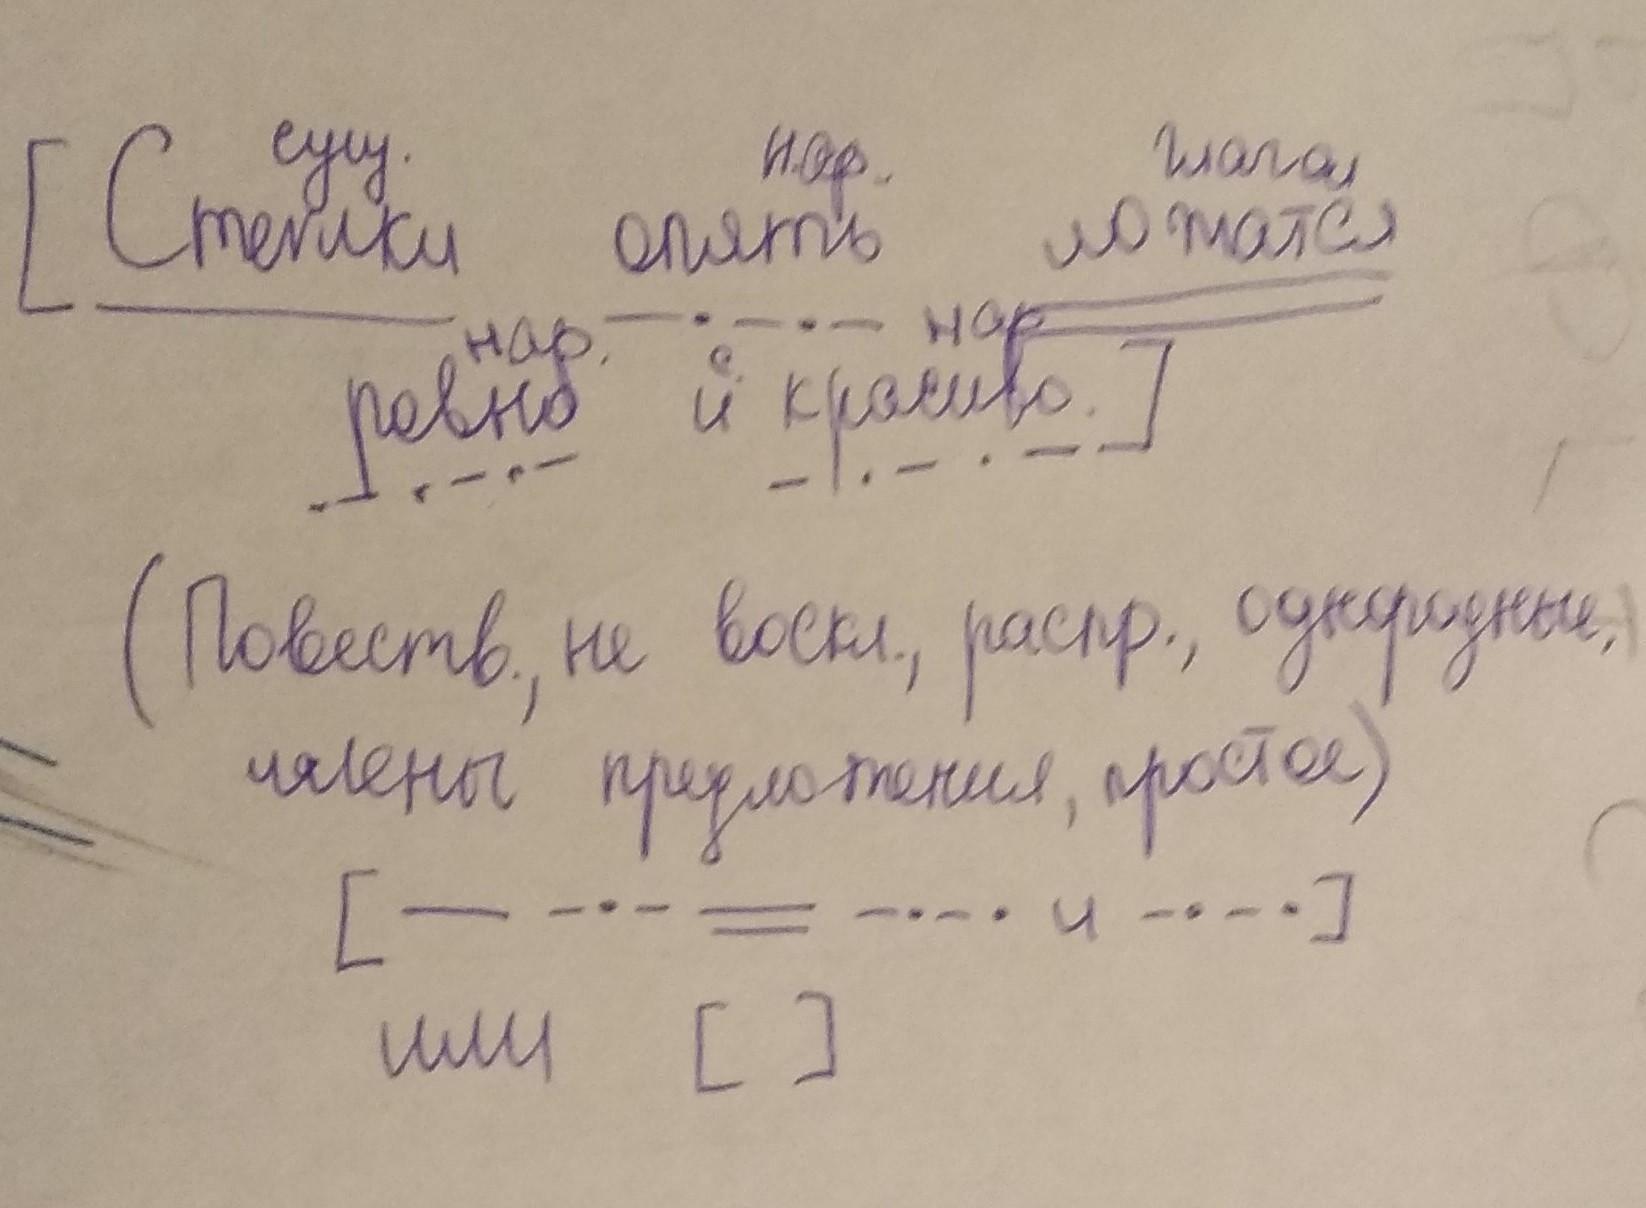 сущ. нар. глагол
[Стежки опять ложатся
нар. нар
с.
ровно и красиво.]
(Повеств., не воскл., распр., однородные,
члены предложения, простое)
[ и ]
или [ ]